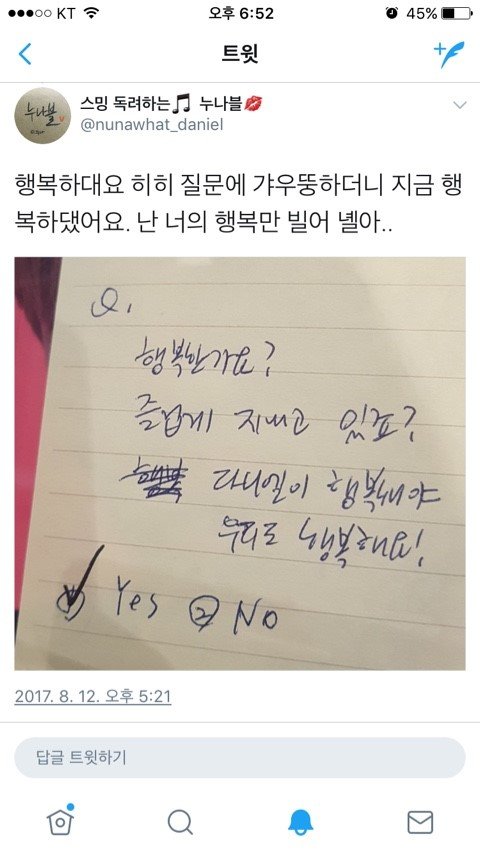 KT 오후 6:52 45%
트윗
누나블
스밍 독려하는🎵 누나블💋
@nunawhat_daniel
행복하대요 히히 질문에 갸우뚱하더니 지금 행
복하댔어요. 난 너의 행복만 빌어 녤아..
Q.
행복한가요?
즐겁게 지내고 있죠?
다니엘이 행복해야
우리도 행복해요!
① Yes ② No
2017. 8. 12. 오후 5:21
답글 트윗하기